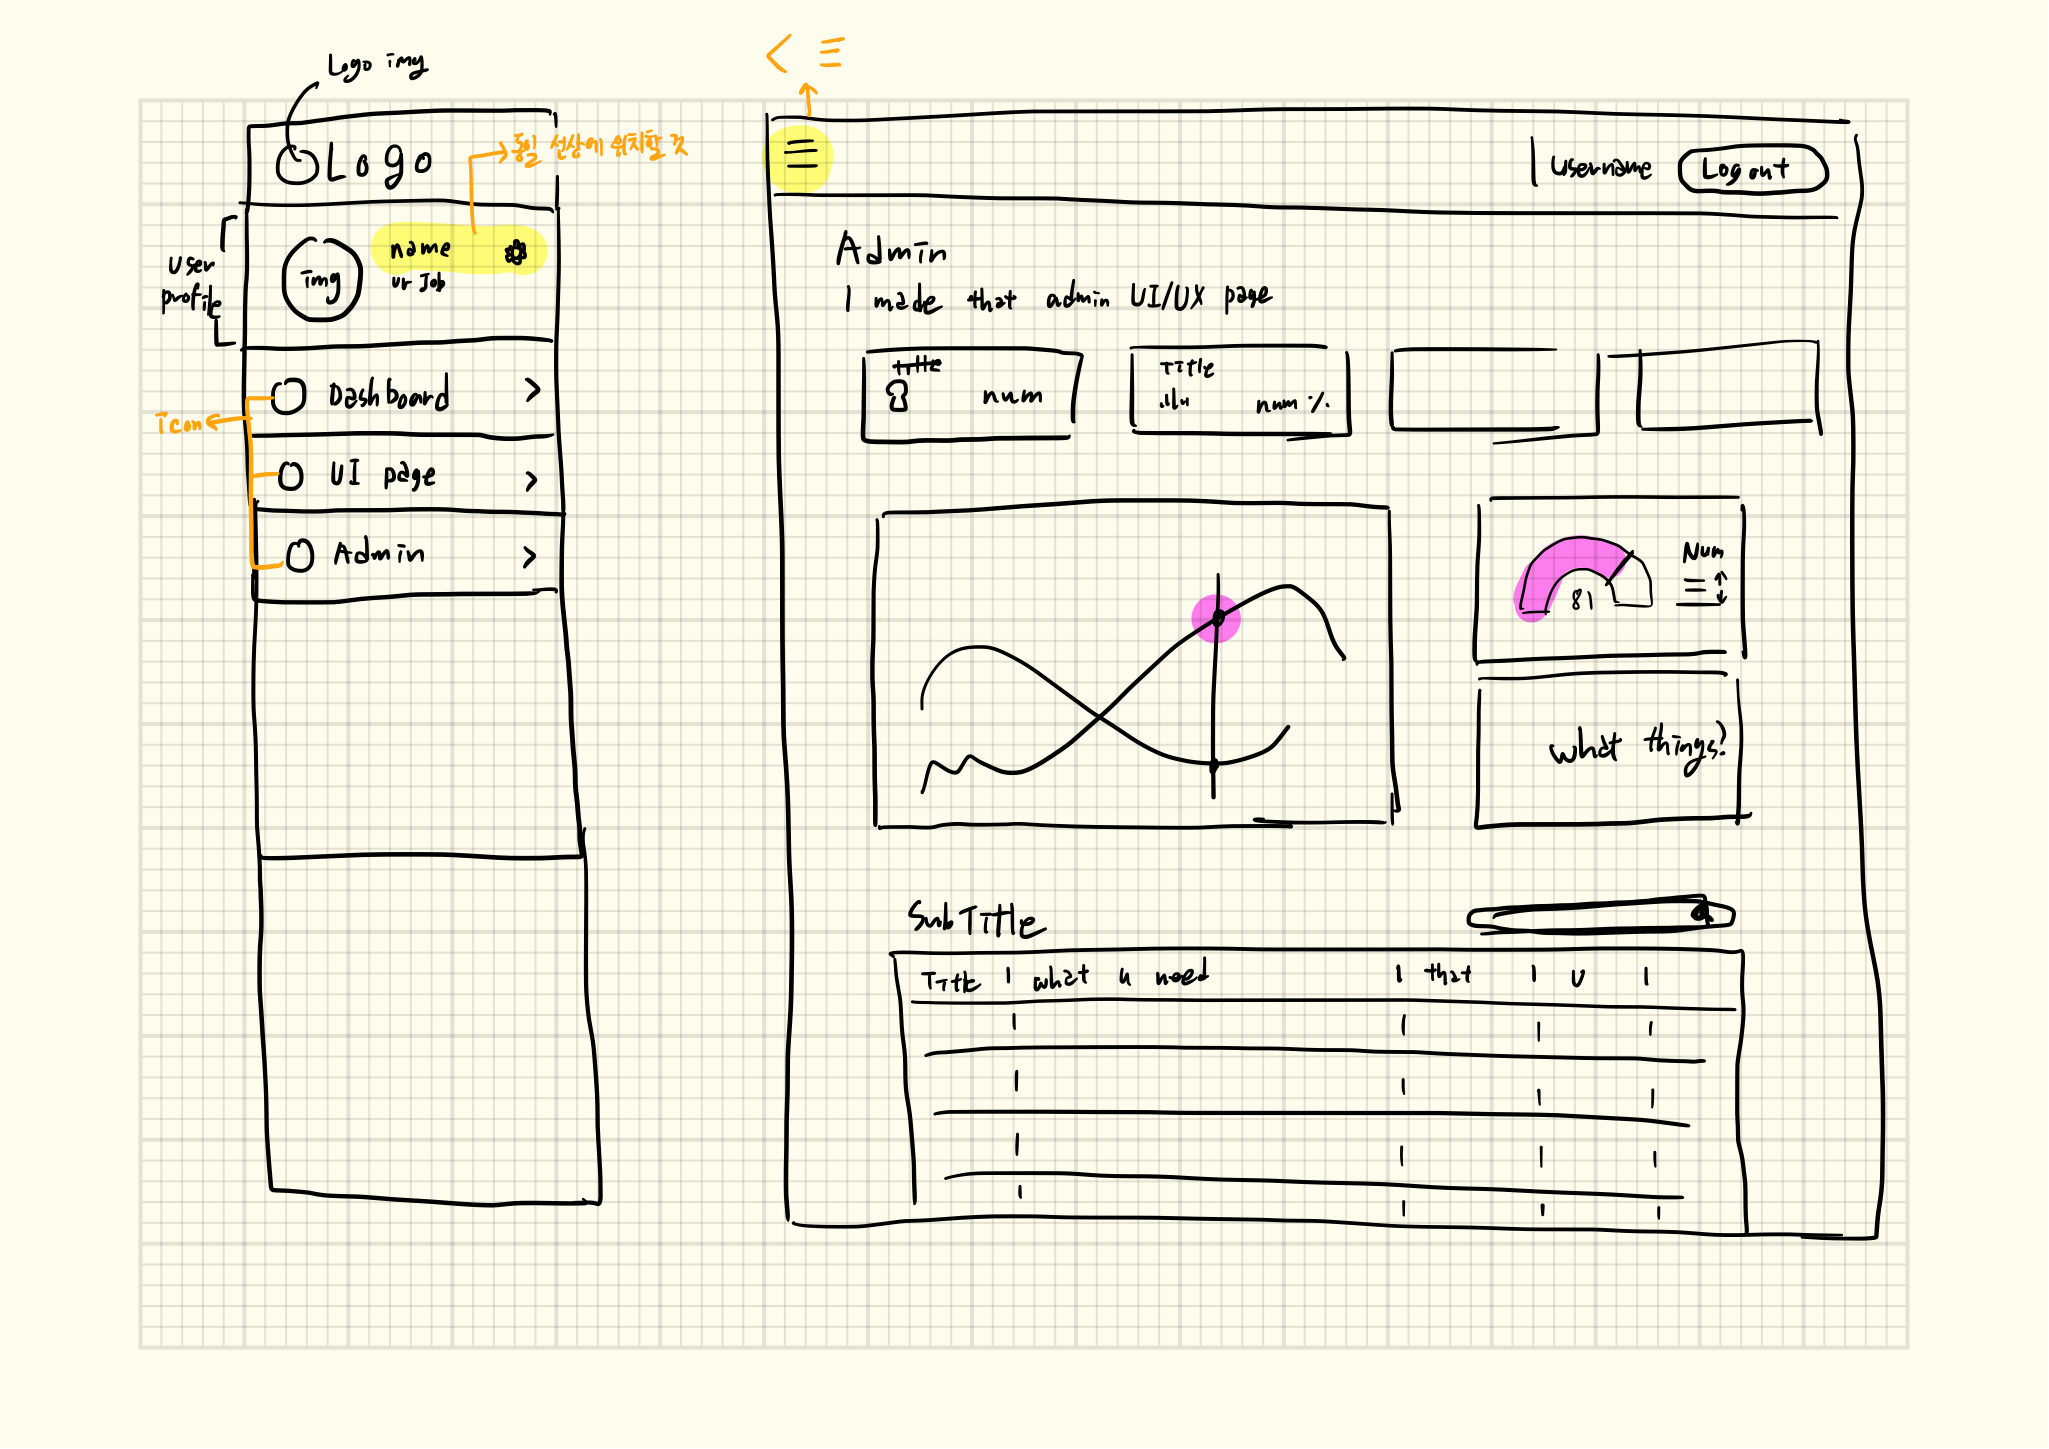 Logo img
Logo
동일 선상에 위치할 것
user
profile
img
name
ur Job
icon
Dashboard
UI page
Admin
username
Logout
Admin
I made that admin UI/UX page
Title
num
Title
num %
81
Num
what things?
SubTitle
Title | what u need | that | U |